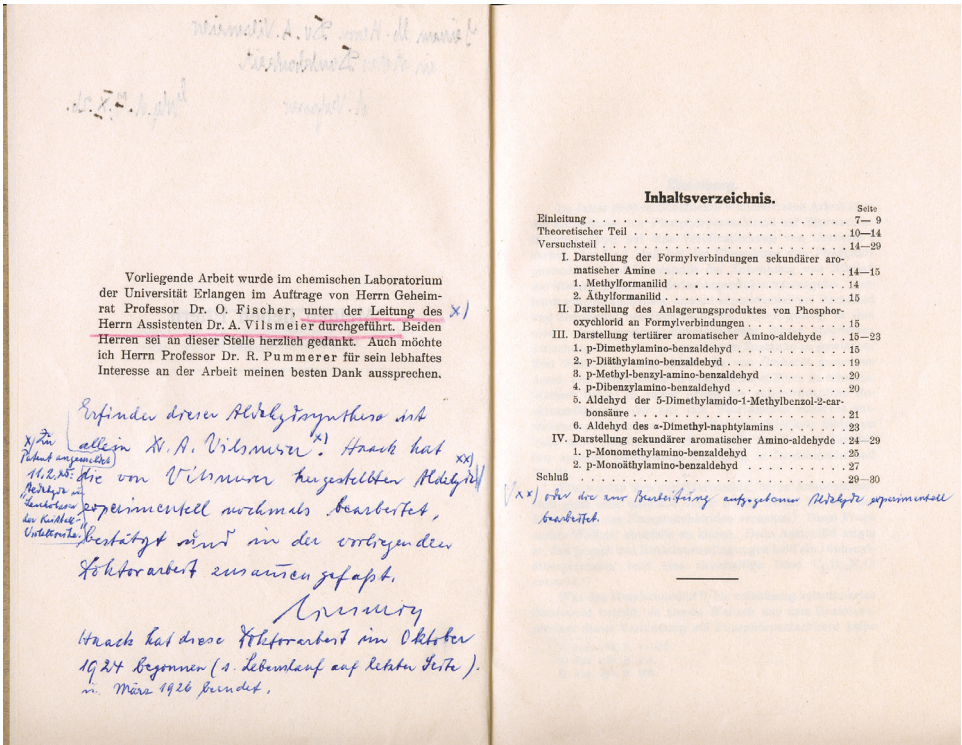 Vorliegende Arbeit wurde im chemischen Laboratorium
der Universität Erlangen im Auftrage von Herrn Geheim-
rat Professor Dr. O. Fischer, unter der Leitung des x)
Herrn Assistenten Dr. A. Vilsmeier durchgeführt. Beiden
Herren sei an dieser Stelle herzlich gedankt. Auch möchte
ich Herrn Professor Dr. R. Pummerer für sein lebhaftes
Interesse an der Arbeit meinen besten Dank aussprechen.
Erfinder dieser Aldehydsynthese ist
allein Dr. A. Vilsmeier x). Haack hat
die von Vilsmeier hergestellten Aldehyde xx)
experimentell nochmals bearbeitet,
bestätigt und in der vorliegenden
Doktorarbeit zusammengefaßt.
Vilsmeier
Haack hat diese Doktorarbeit im Oktober
1924 begonnen (s. Lebenslauf auf letzter Seite).
u. März 1926 beendet.
x) Zum
Patent angemeldet
11.2.25:
"Aldehyde
der Kristall-
Violettreihe."
Inhaltsverzeichnis.
Seite
Einleitung . . . 7— 9
Theoretischer Teil . . . 10—14
Versuchsteil . . . 14—29
I. Darstellung der Formylverbindungen sekundärer aro-
matischer Amine . . . 14—15
1. Methylformanilid . . . 14
2. Äthylformanilid . . . 15
II. Darstellung des Anlagerungsproduktes von Phosphor-
oxychlorid an Formylverbindungen . . . 15
III. Darstellung tertiärer aromatischer Amino-aldehyde . . 15—23
1. p-Dimethylamino-benzaldehyd . . . 15
2. p-Diäthylamino-benzaldehyd . . . 19
3. p-Methyl-benzyl-amino-benzaldehyd . . . 20
4. p-Dibenzylamino-benzaldehyd . . . 20
5. Aldehyd der 5-Dimethylamido-1-Methylbenzol-2-car-
bonsäure . . . 21
6. Aldehyd des α-Dimethyl-naphtylamins . . . 23
IV. Darstellung sekundärer aromatischer Amino-aldehyde . 24—29
1. p-Monomethylamino-benzaldehyd . . . 25
2. p-Monoäthylamino-benzaldehyd . . . 27
Schluß . . . 29—30
xx) oder die zur Bearbeitung aufgegebenen Aldehyde experimentell
bearbeitet.